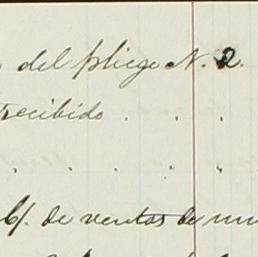 del pliego N. 2.
recibido . . .
. . . . .
6/. de ventas de